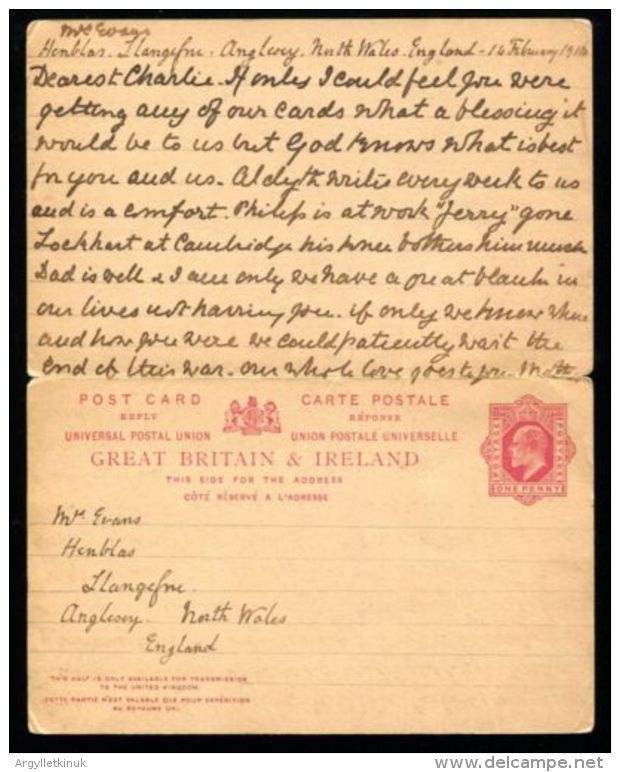 Mrs Evans
Henblas. Llangefni. Anglesey. North Wales. England - 16 February 191
Dearest Charlie. If only I could feel you were
getting any of our cards what a blessing it
would be to us but God knows what is best
for you and us. Aldyth writes every week to us
and is a comfort. Philip is at work "Jerry" gone
Lockhart at Cambridge his knee bothers him much
Dad is well & I am only we have a great blank in
our lives not having you. if only we knew where
and how you were we could patiently wait the
end of this war. Our whole love goes to you Moth
POST CARD CARTE POSTALE
REPLY RÉPONSE
UNIVERSAL POSTAL UNION UNION POSTALE UNIVERSELLE
GREAT BRITAIN & IRELAND
THIS SIDE FOR THE ADDRESS
CÔTÉ RÉSERVÉ A L'ADRESSE
POSTAGE POSTAGE
ONE PENNY
Mrs Evans
Henblas
Llangefni.
Anglesey. North Wales
England
THIS HALF IS ONLY AVAILABLE FOR TRANSMISSION
TO THE UNITED KINGDOM.
(CETTE PARTIE N'EST VALABLE QUE POUR EXPÉDITION
AU ROYAUME UNI.
Argylletkinuk
delcampe.net